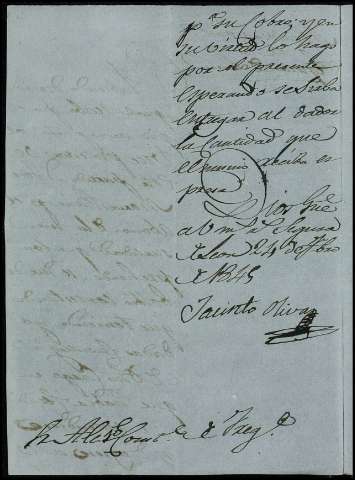 pª. su Cobro, y en
su virtud lo hago
por el presente
esperando se sirba
entregar al dador
la Cantidad que
el mismo recibo es
presa
Dios Gue.
á V. m. a. Segura
de Leon 24 de
de 1845
Jacinto Olivar